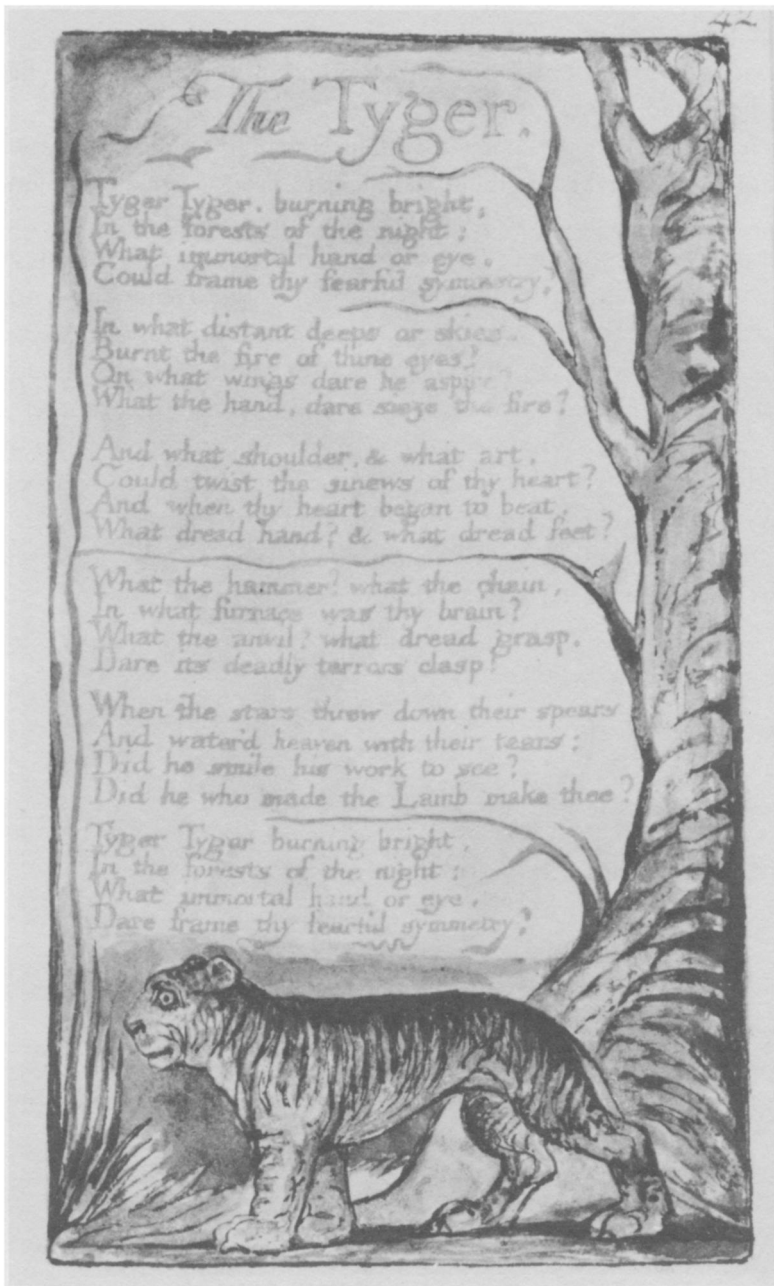 42
The Tyger.
Tyger Tyger. burning bright,
In the forests of the night:
What immortal hand or eye.
Could frame thy fearful symmetry?
In what distant deeps or skies.
Burnt the fire of thine eyes?
On what wings dare he aspire?
What the hand, dare sieze the fire?
And what shoulder, & what art,
Could twist the sinews of thy heart?
And when thy heart began to beat,
What dread hand? & what dread feet?
What the hammer? what the chain,
In what furnace was thy brain?
What the anvil? what dread grasp.
Dare its deadly terrors clasp!
When the stars threw down their spears
And water'd heaven with their tears:
Did he smile his work to see?
Did he who made the Lamb make thee?
Tyger Tyger burning bright,
In the forests of the night:
What immortal hand or eye.
Dare frame thy fearful symmetry?